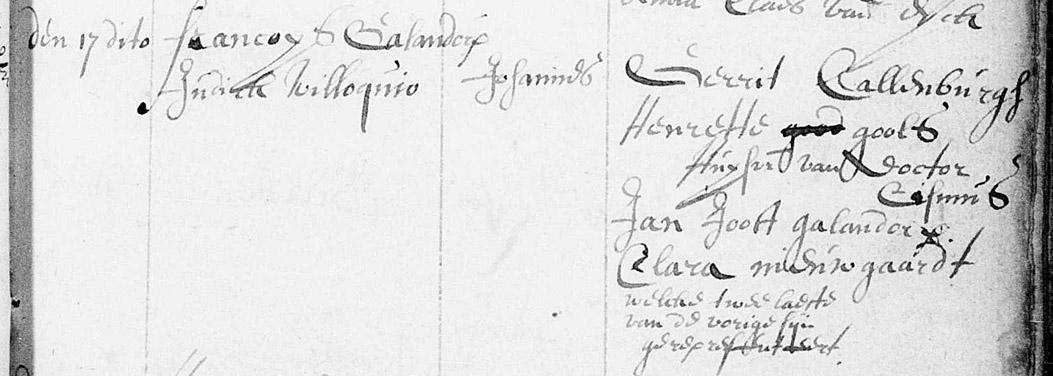 Claes van dyck
den 17 dito francoys Galandorp
Judith Willoquio Johannes
Gerrit Callenburgh
Henrette gools
Huysvr van Doctor
Jan Joost galandorp.
Clara nieuwgaardt
welcke twee laeste
van de vorige sijn
gerepresenteert.